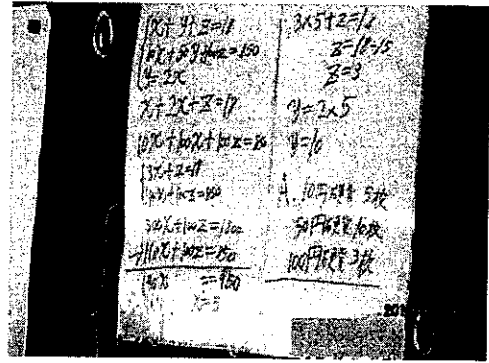 x+y+z=18
10x+50y+100z=850
y=2x
x+2x+z=18
10x+100x+100z=850
3x+z=18
110x+100z=850
300x+100z=1800
-)110x+100z=850
190x =950
x=5
3×5+z=18
z=18-15
z=3
y=2×5
y=10
A. 10円硬貨 5枚
50円硬貨 10枚
100円硬貨 3枚